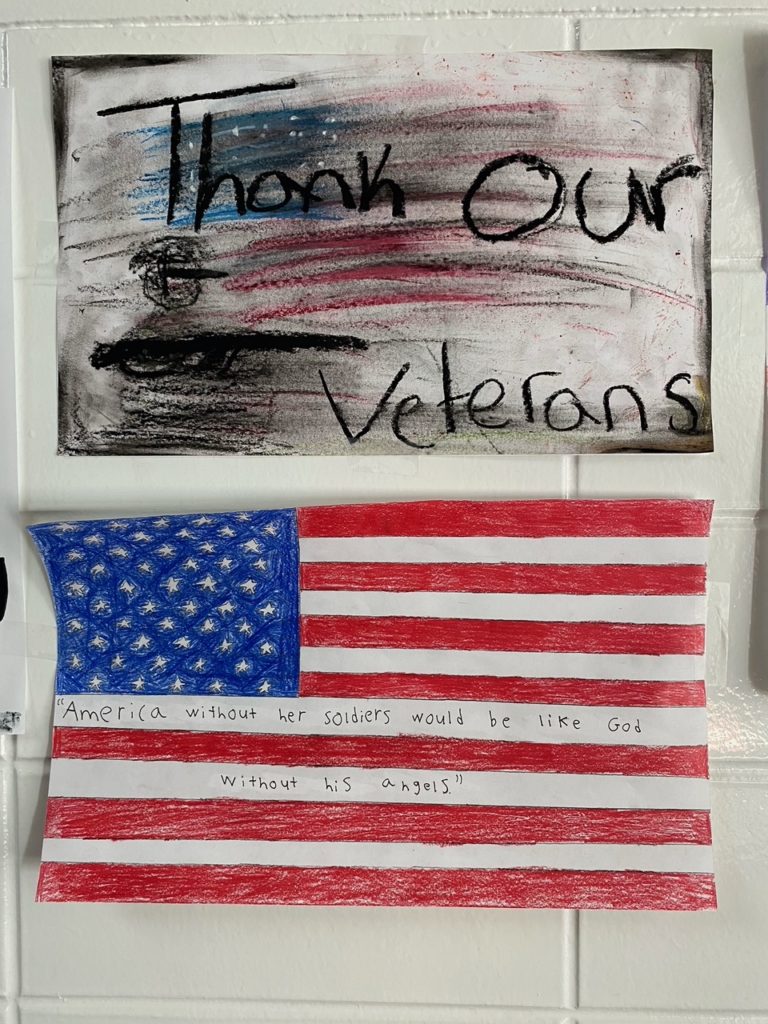 Thank Our
Veterans
"America without her soldiers would be like God
without his angels."